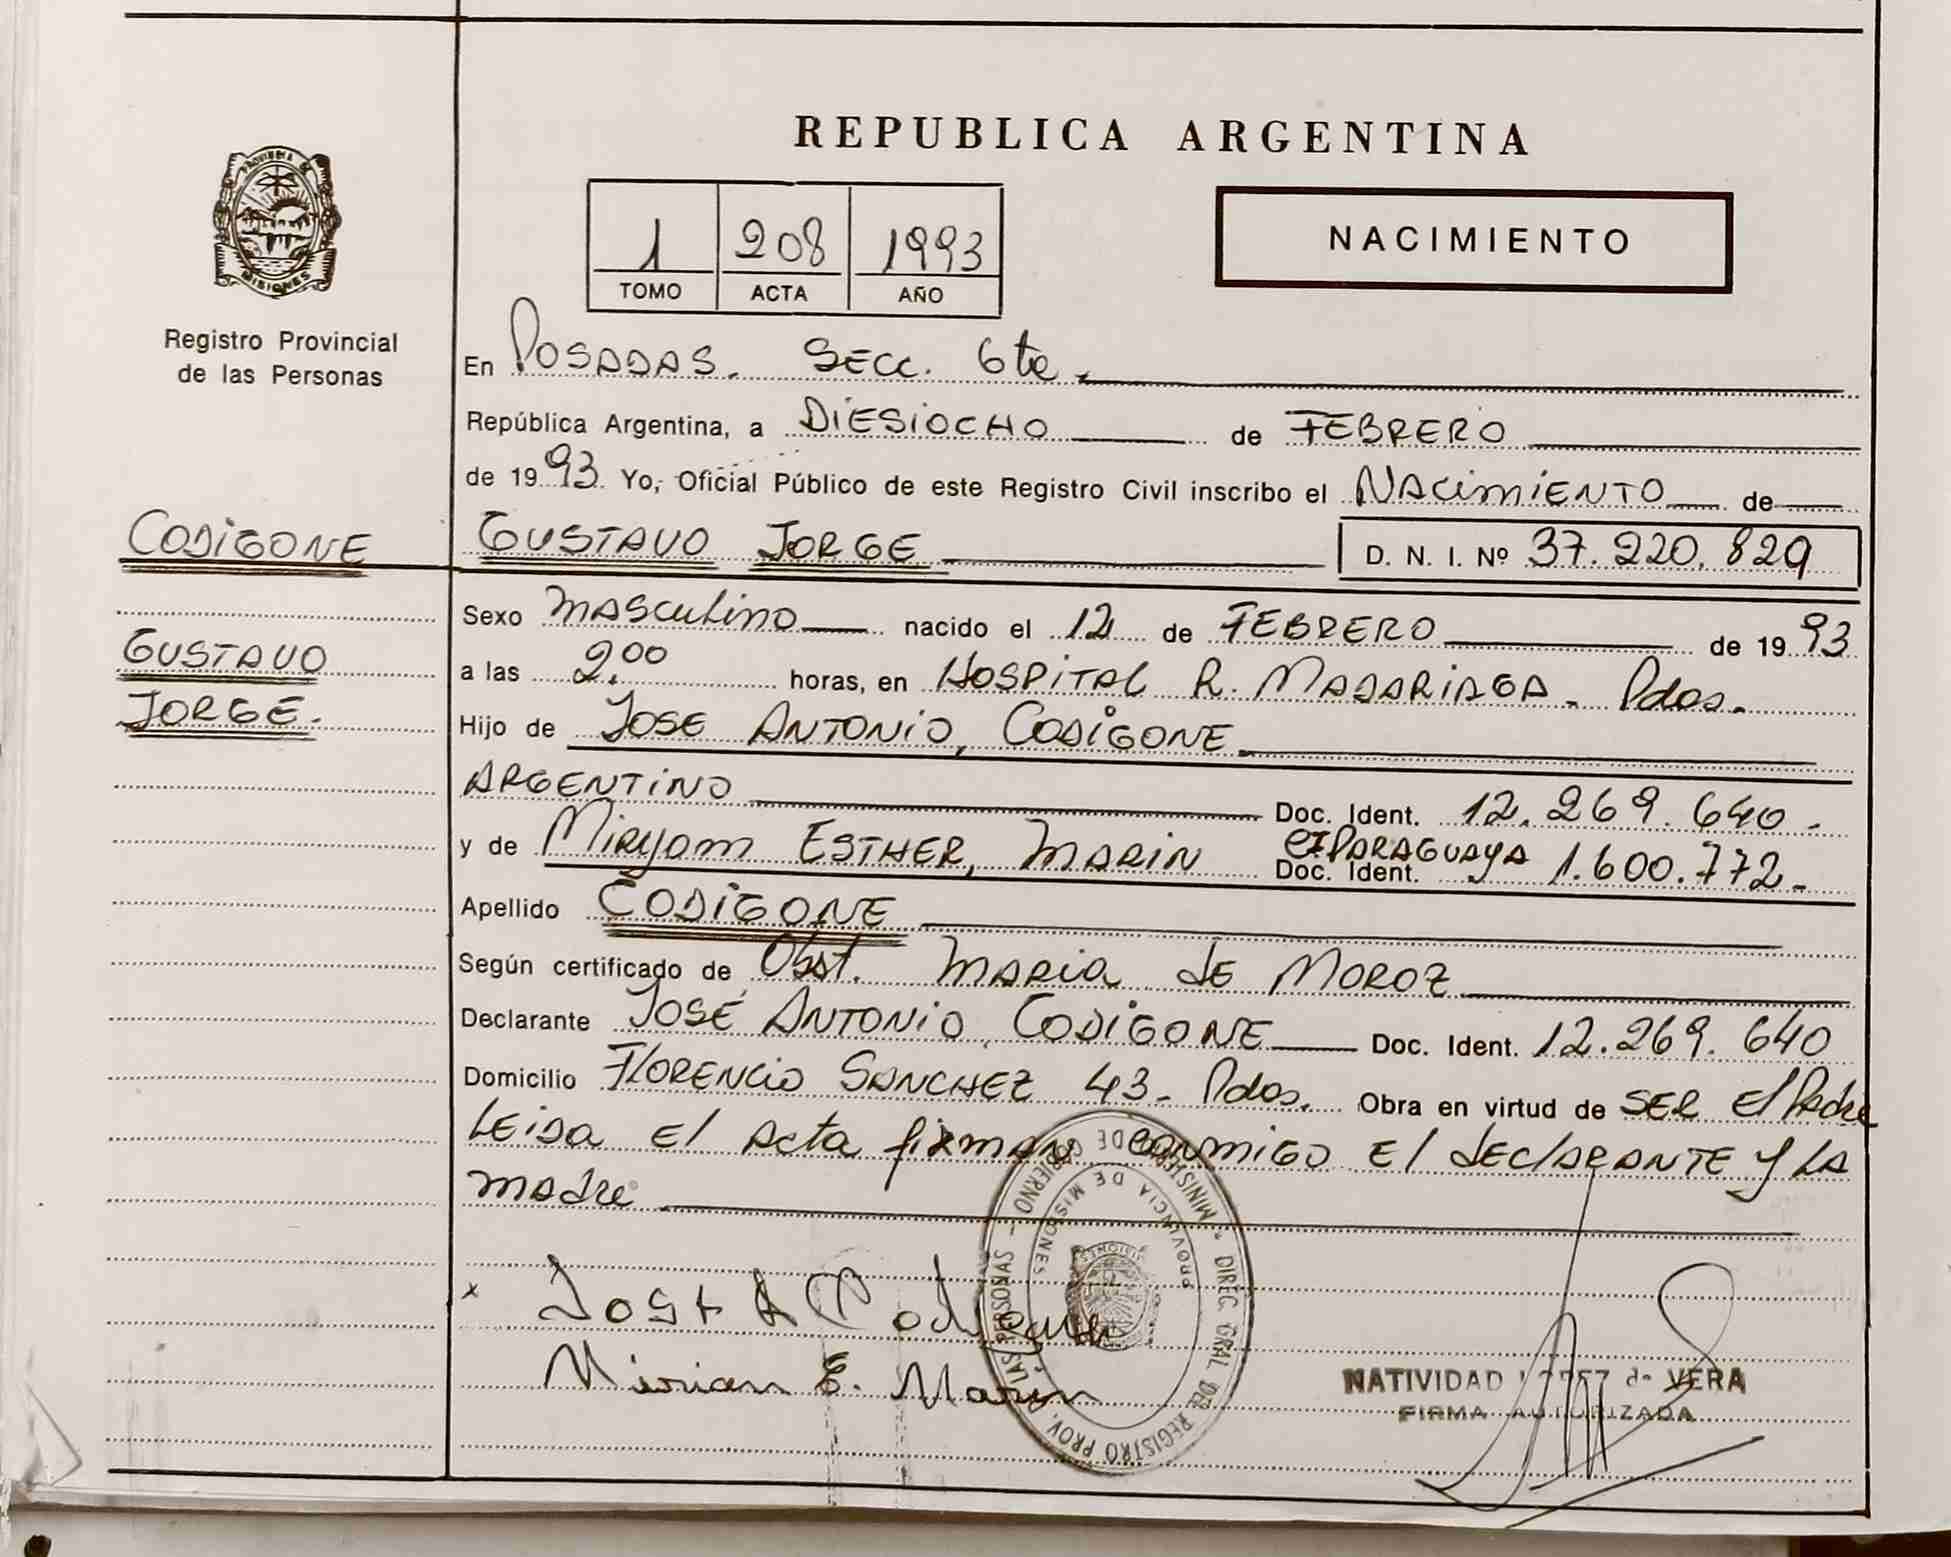 REPUBLICA ARGENTINA
PROVINCIA DE
MISIONES
Registro Provincial
de las Personas
1 208 1993
TOMO ACTA AÑO
NACIMIENTO
En POSADAS. SECC. 6ta.
República Argentina, a DIESIOCHO de FEBRERO
de 1993 Yo, Oficial Público de este Registro Civil inscribo el NACIMIENTO de
CODIGONE
GUSTAVO
JORGE.
GUSTAVO JORGE D. N. I. Nº 37.220.829
Sexo MASCULINO nacido el 12 de FEBRERO de 1993
a las 2.00 horas, en HOSPITAL R. MADARIAGA - Pdas.
Hijo de JOSE ANTONIO, CODIGONE
ARGENTINO Doc. Ident. 12.269.640.
y de Miryam ESTHER, MARIN Doc. Ident. CI PARAGUAYA 1.600.772.
Apellido CODIGONE
Según certificado de Obst. MARIA de MOROZ
Declarante JOSÉ ANTONIO, CODIGONE Doc. Ident. 12.269.640
Domicilio FLORENCIO SANCHEZ 43 - Pdas. Obra en virtud de SER El Padre
LEIDA El Acta firman conmigo El dEclARANTE y LA
madre
x Jose A Codigone
Mirian E. Marin
MINISTERIO DE GOBIERNO - DIREC. GRAL DEL REGISTRO PROV. DE LAS PERSONAS
PROVINCIA DE MISIONES
MISIONES
NATIVIDAD LOPEZ de VERA
FIRMA AUTORIZADA